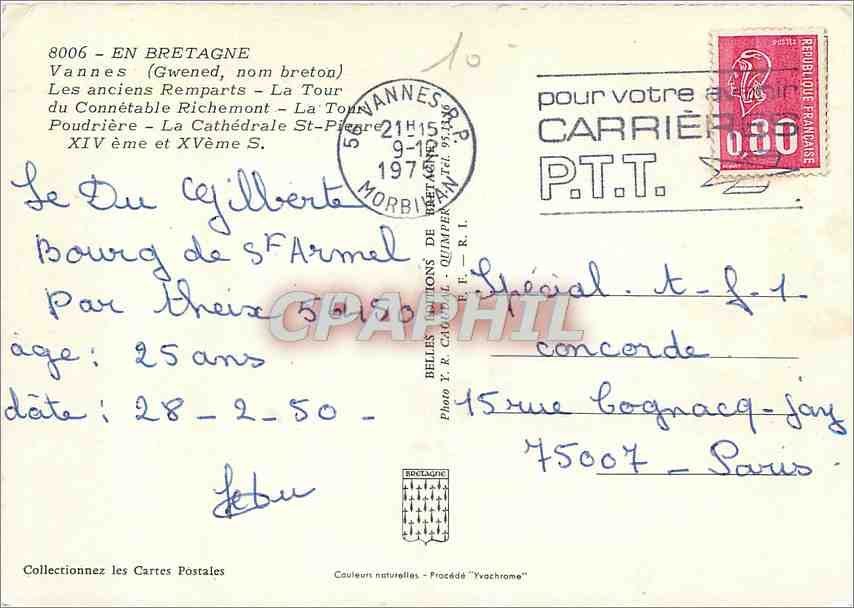 8006 - EN BRETAGNE
Vannes (Gwened, nom breton)
Les anciens Remparts - La Tour
du Connétable Richemont - La Tour
Poudrière - La Cathédrale St-Pierre
XIV ème et XVème S.
10
56 VANNES R.P.
21H15
9-12
197
MORBIHAN
pour votre avenir
CARRIÈRES
P.T.T.
POSTES
REPUBLIQUE FRANÇAISE
0,80
Le Du Gilberte
Bourg de St Armel
Par theix 56450
âge : 25 ans
dâte : 28 - 2 - 50 -
BELLES EDITIONS DE BRETAGNE
Photo Y. R. CAOUDAL - QUIMPER Tél. 95.13.16
F. F. — R. I.
CPAPHIL
Spécial . t - f - 1
concorde
15 rue Cognacq-Jay
75007 - Paris
BRETAGNE
Collectionnez les Cartes Postales
Couleurs naturelles - Procédé "Yvachrome"